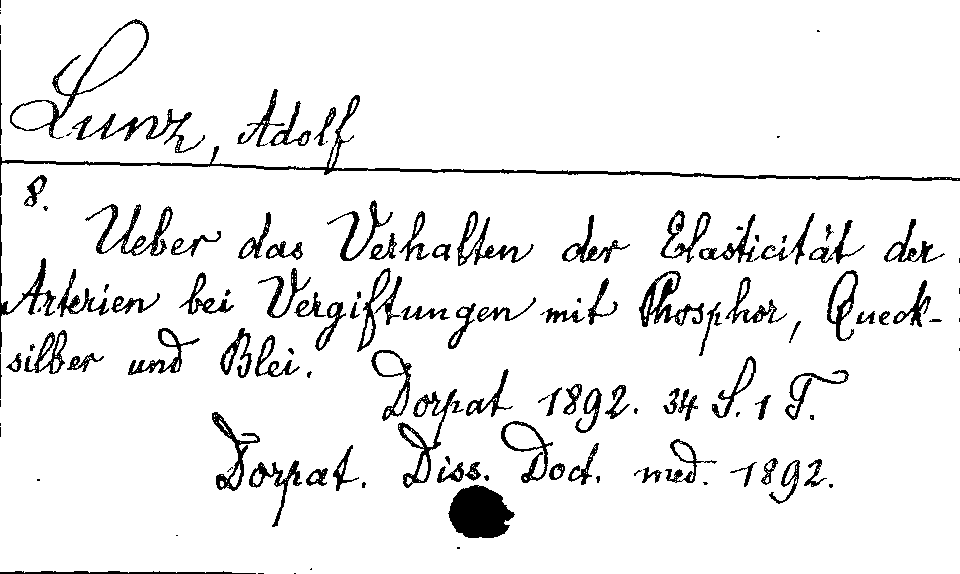 Lunz, Adolf
8.
Ueber das Verhalten der Elasticität der
Arterien bei Vergiftungen mit Phosphor, Queck-
silber und Blei.
Dorpat 1892. 34 S. 1 T.
Dorpat. Diss. Doct. med. 1892.